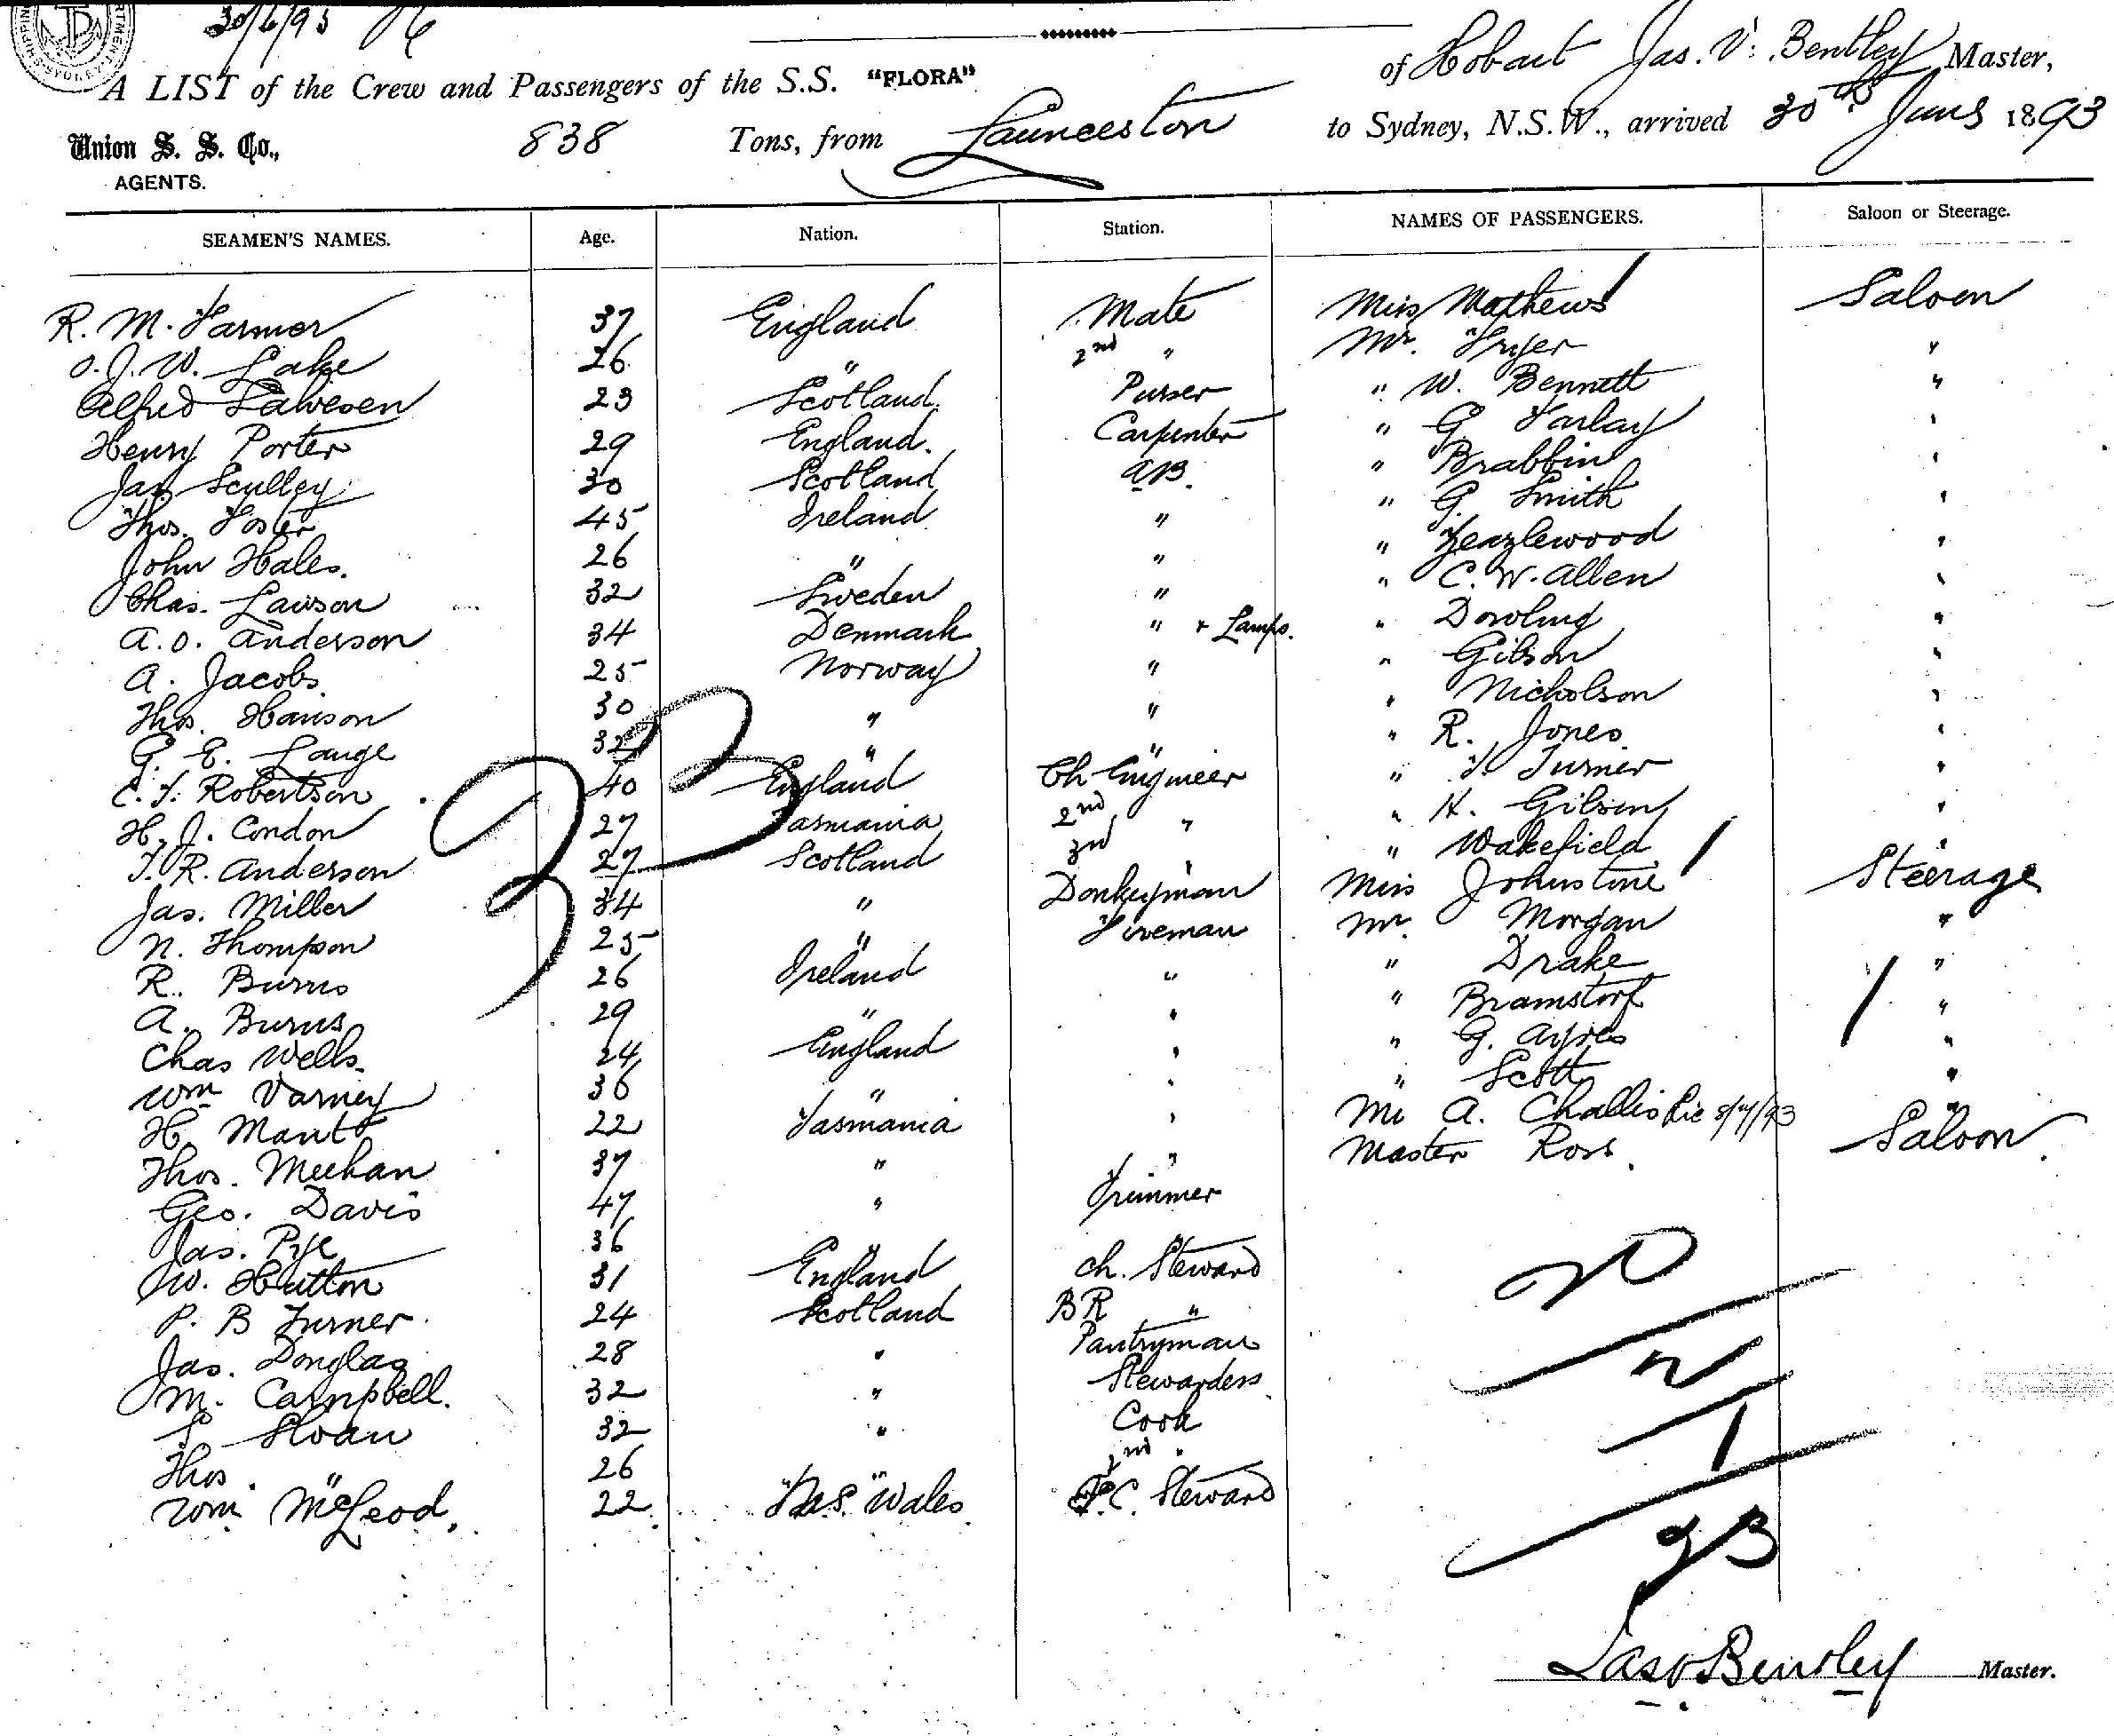 30/6/93
of Hobart Jas. V. Bentley Master,
A LIST of the Crew and Passengers of the S.S. "FLORA"
Union S. S. Co., 838 Tons, from Launceston to Sydney, N.S.W., arrived 30th June 1893
AGENTS.
SEAMEN'S NAMES. Age. Nation. Station. NAMES OF PASSENGERS. Saloon or Steerage.
R. M. Farmer 37 England Mate Miss Mathews Saloon
O. J. W. Lake 26 " 2nd " Mr. Fryer "
Alfred Lawesen 23 Scotland Purser " W. Bennett "
Henry Porter 29 England. Carpenter " G Farlay "
Jas Sculley 30 Scotland AB. " Brabbin "
Thos. Foster 45 Ireland " " G. Smith "
John Hales. 26 " " " Heazlewood "
Chas. Lawson 32 Sweden " " C. W. Allen "
A. O. Anderson 34 Denmark " + Lamps. " Dowling "
A. Jacobs 25 Norway " " Gibson "
Thos. Hanson 30 " " " Nicholson "
G. E. Lange 32 " " " R. Jones "
C. F. Robertson 40 England Ch Engineer " F. Turner "
H. J. Condon 27 Tasmania 2nd " " H. Gibson "
J. R. Anderson 27 Scotland 3rd " " Wakefield "
Jas. Miller 34 " Donkeyman Miss Johnstone Steerage
N. Thompson 25 " Fireman Mr. Morgan "
R. Burns 26 Ireland " " Drake "
A. Burns 29 " " " Bramstorf "
Chas Wells 24 England " " G. Ayres "
Wm Varney 36 " " " Scott "
H. Mant 22 Tasmania " Mr A. Challis 8/7/93 "
Thos. Meehan 37 " " Master Ross. Saloon.
Geo. Davis 47 " Trimmer
Jas. Pye 36 "
W. Hutton 31 England Ch. Steward
P. B Turner 24 Scotland BR "
Jas. Douglas 28 " Pantryman
M. Campbell. 32 " Stewardess
S Sloan 32 " Cook
Thos. " 26 " 2nd "
Wm McLeod, 22 N.S. Wales F.C. Steward
33
23
Jas V Bentley Master.